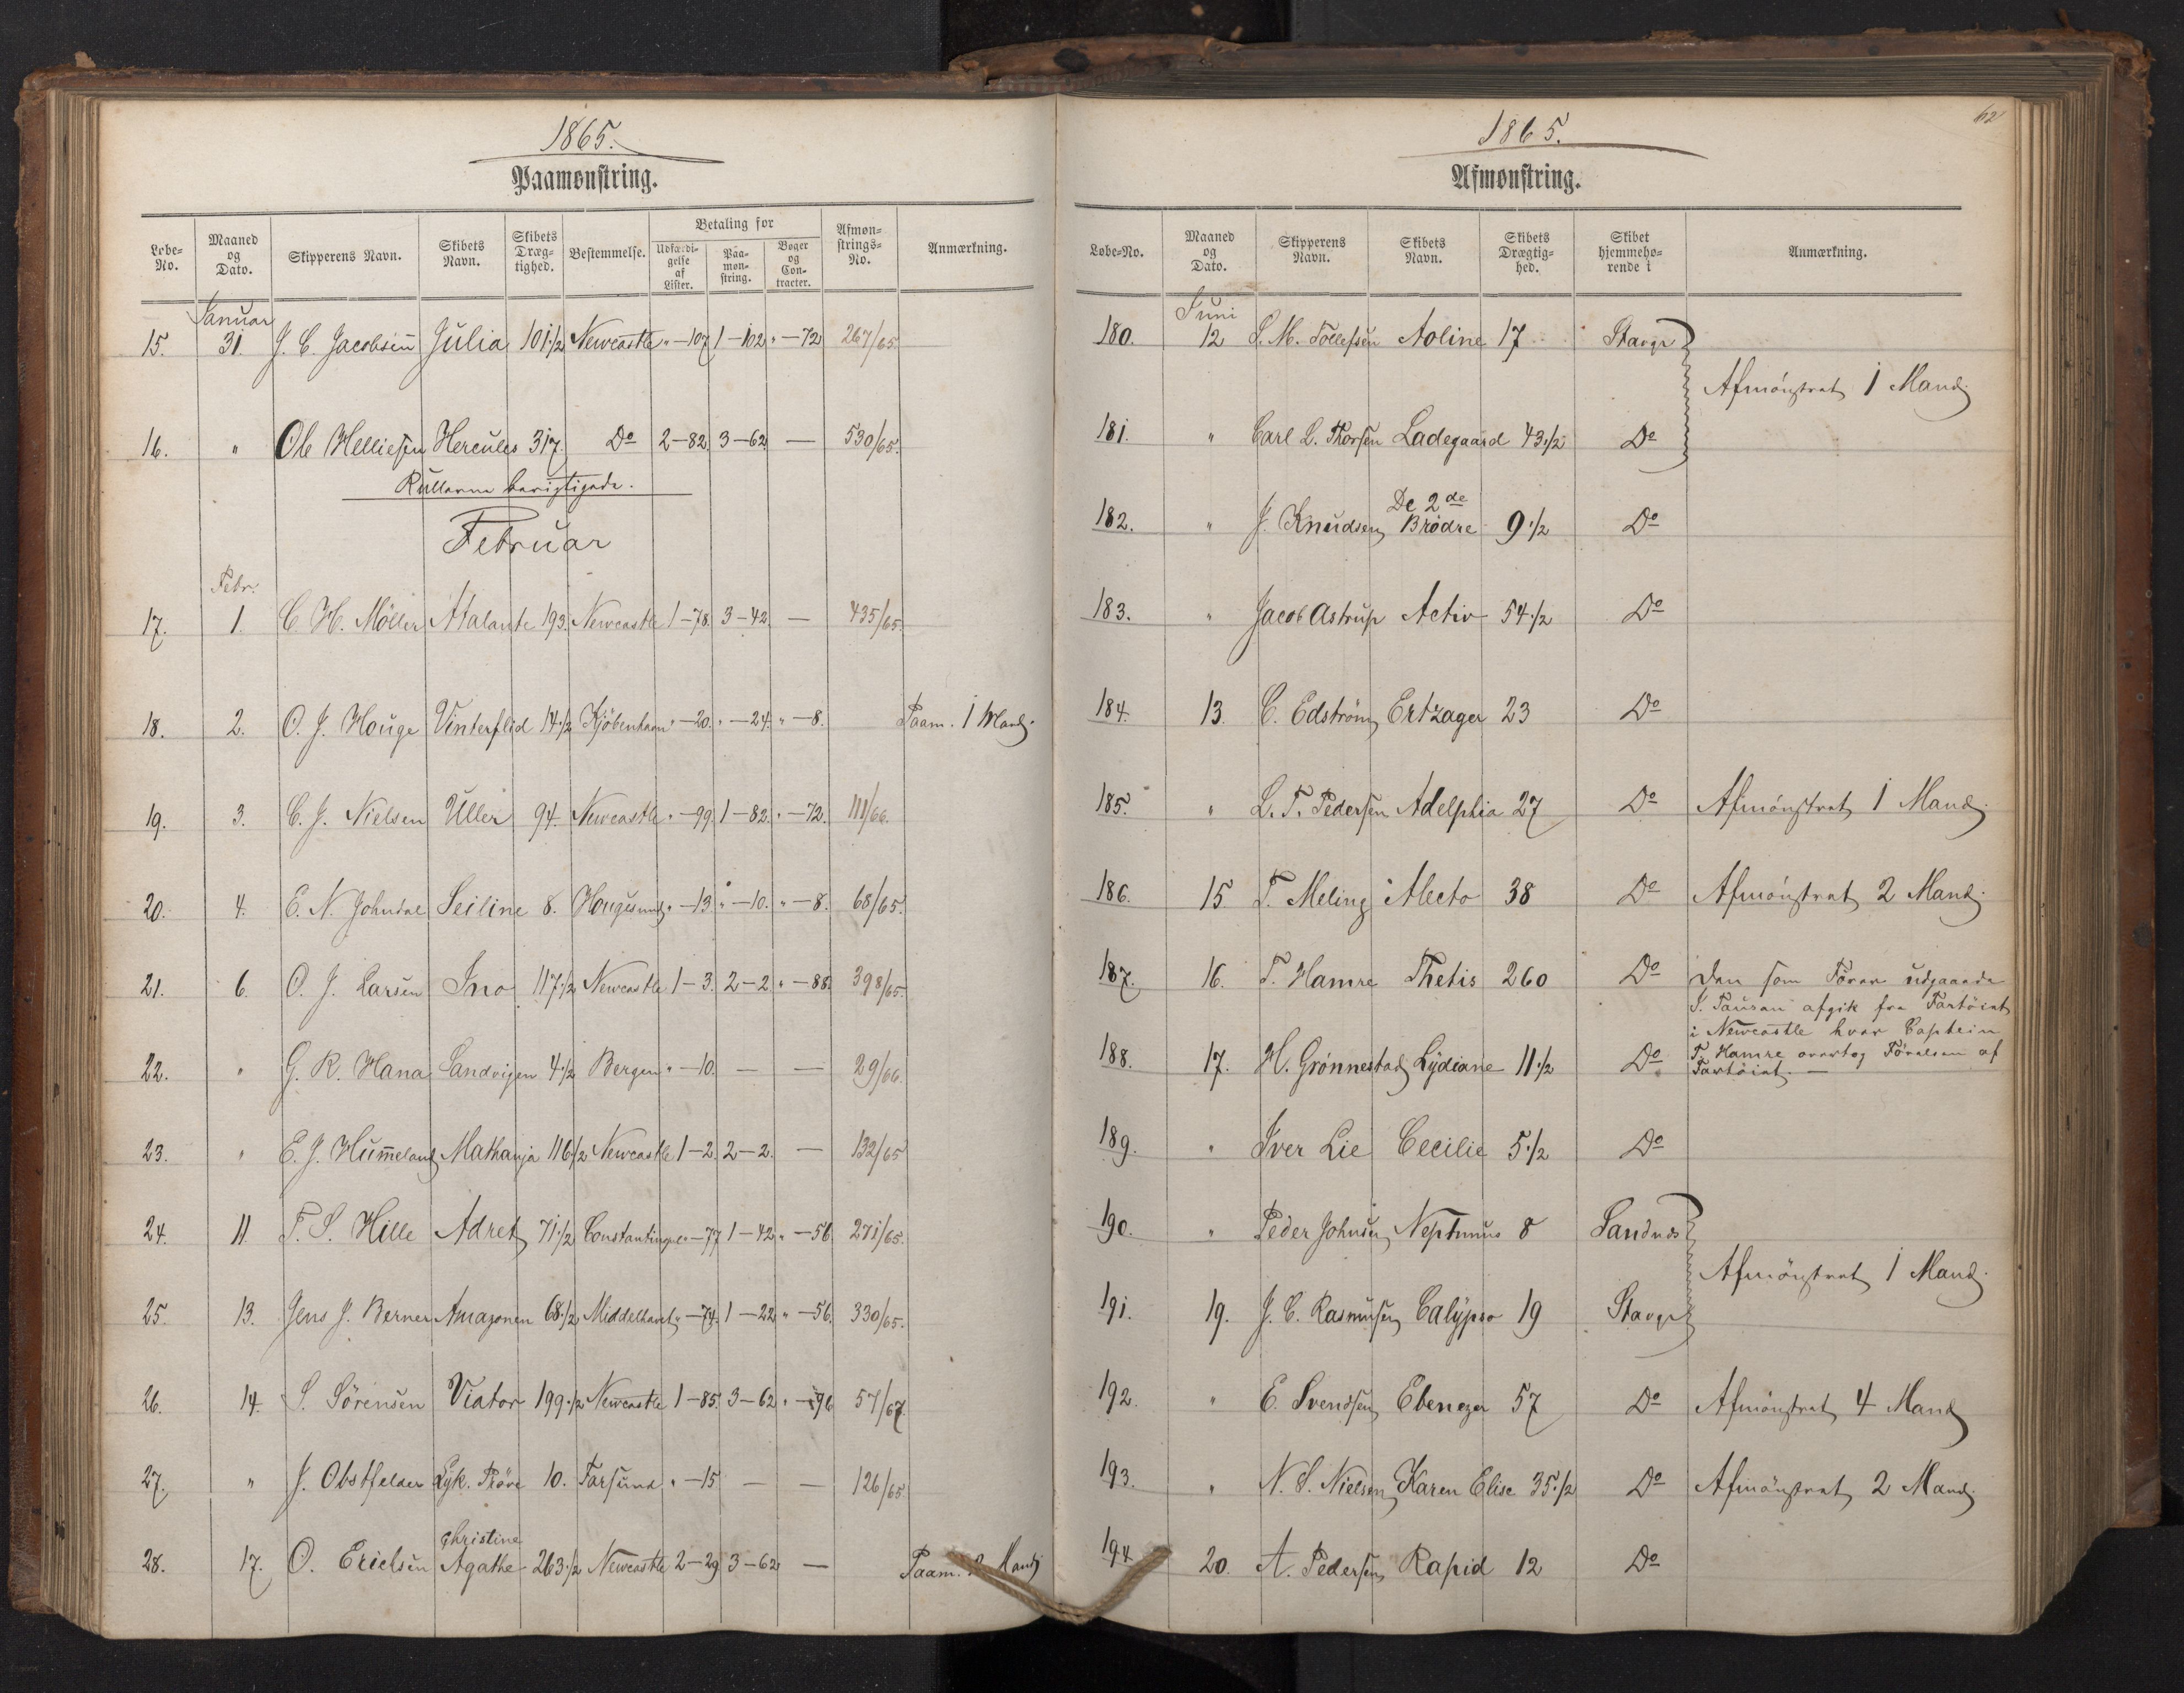 1865.
Paamønstring.
Løbe-No. Maaned og Dato. Skipperens Navn. Skibets Navn. Skibets Dræg-tighed. Bestemmelse. Betaling for Udfærdi-gelse af Lister. Paa-møn-string. Bøger og Con-tracter. Afmøn-strings-No. Anmærkning.
Januar
15. 31. J. C. Jacobsen Julia 101 1/2 Newcastle " — 107 1 — 102 " — 72 267/65.
16. " Ole Helliesen Hercules 317. Do 2 — 82. 3 — 62. — 530/65.
Rullerne berigtigede.
Februar
Febr.
17. 1. C. H. Möller Atalante 193. Newcastle 1 — 78. 3 — 42. — 435/65.
18. 2. O. J. Houge Vinterflid 14 1/2 Kjöbenhavn " — 20. " — 24. " — 8. Paam. 1 Mand.
19. 3. C. J. Nielsen Uller 94. Newcastle " — 99. 1 — 82. " — 72. 111/66.
20. 4. E. N. Johndal Seiline 8. Hougesund " — 13. " — 10. " — 8. 68/65.
21. 6. O. J. Larsen Ino 117 1/2 Newcastle 1 — 3. 2 — 2. " — 88. 398/65.
22. " G. R. Hana Sandvigen 4 1/2 Bergen " — 10. — — 29/66.
23. " E. J. Hum̄eland Mathanja 116 1/2 Newcastle 1 — 2. 2 — 2. — 132/65
24. 11. T. S. Hille Adret 71 1/2 Constantinopel " — 77 1 — 42 " — 56 271/65.
25. 13. Jens J. Berner Amazonen 68 1/2 Middelhavet " — 74. 1 — 22 " — 56. 330/65.
26. 14. S. Sörensen Viator 199 1/2 Newcastle 1 — 85. 3 — 62 " — 96 57/67.
27. " J. Obstfelder Lyk. Pröve 10. Farsund " — 15 — — 126/65.
Christine
28. 17. O. Erichsen Agathe 263 1/2 Newcastle 2 — 29 3 — 62 — Paam. Mand
62
1865.
Afmønstring.
Løbe-No. Maaned og Dato. Skipperens Navn. Skibets Navn. Skibets Drægtig-hed. Skibet hjemmehø-rende i Anmærkning.
Juni
180. 12 S. M. Tollefsen Aoline 17 Stavgr
Afmönstret 1 Mand.
181. " Carl L. Thorsen Ladegaard 43 1/2 Do
De 2de
182. " J. Knudsen Brödre 9 1/2 Do
183. " Jacob Astrup Activ 54 1/2 Do
184. 13. C. Edström Ertzager 23 Do
185. " L. T. Pedersen Adelphia 27 Do Afmönstret 1 Mand.
186. 15. T. Meling Alecto 38 Do Afmönstret 2 Mand.
187. 16. T. Hamre Thetis 260 Do Den som Förer udgaaede
afgik fra Fartöiet
i Newcastle hvor Captein
188. 17. H. Grönnestad Lydiane 11 1/2 Do T. Hamre overtog Förelsen af
Fartöiet. —
189. " Iver Lie Cecilie 5 1/2 Do
190. " Peder Johnsen Neptunus 8 Sandnæs
Afmönstret 1 Mand.
191. 19. J. C. Rasmusen Calypso 19 Stavgr
192. " E. Svendsen Ebenezer 57 Do Afmönstret 4 Mand
193. " N. S. Nielsen Karen Elise 35 1/2 Do Afmönstret 2 Mand.
194 20. A. Pedersen Rapid 12 Do